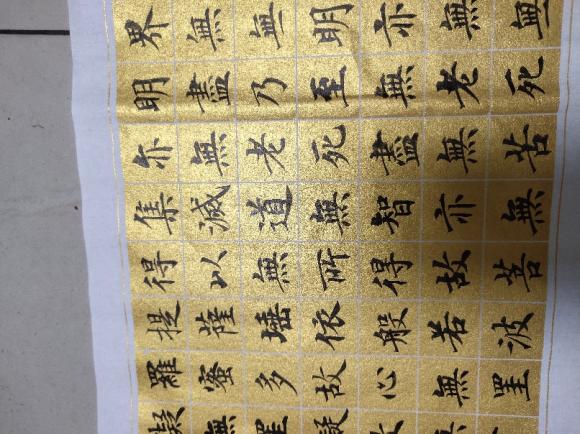 界無無明亦無無
明盡乃至無老死
亦無老死盡無苦
集滅道無智亦無
得以無所得故菩
提薩埵依般若波
羅蜜多故心無罣
礙無罣礙故